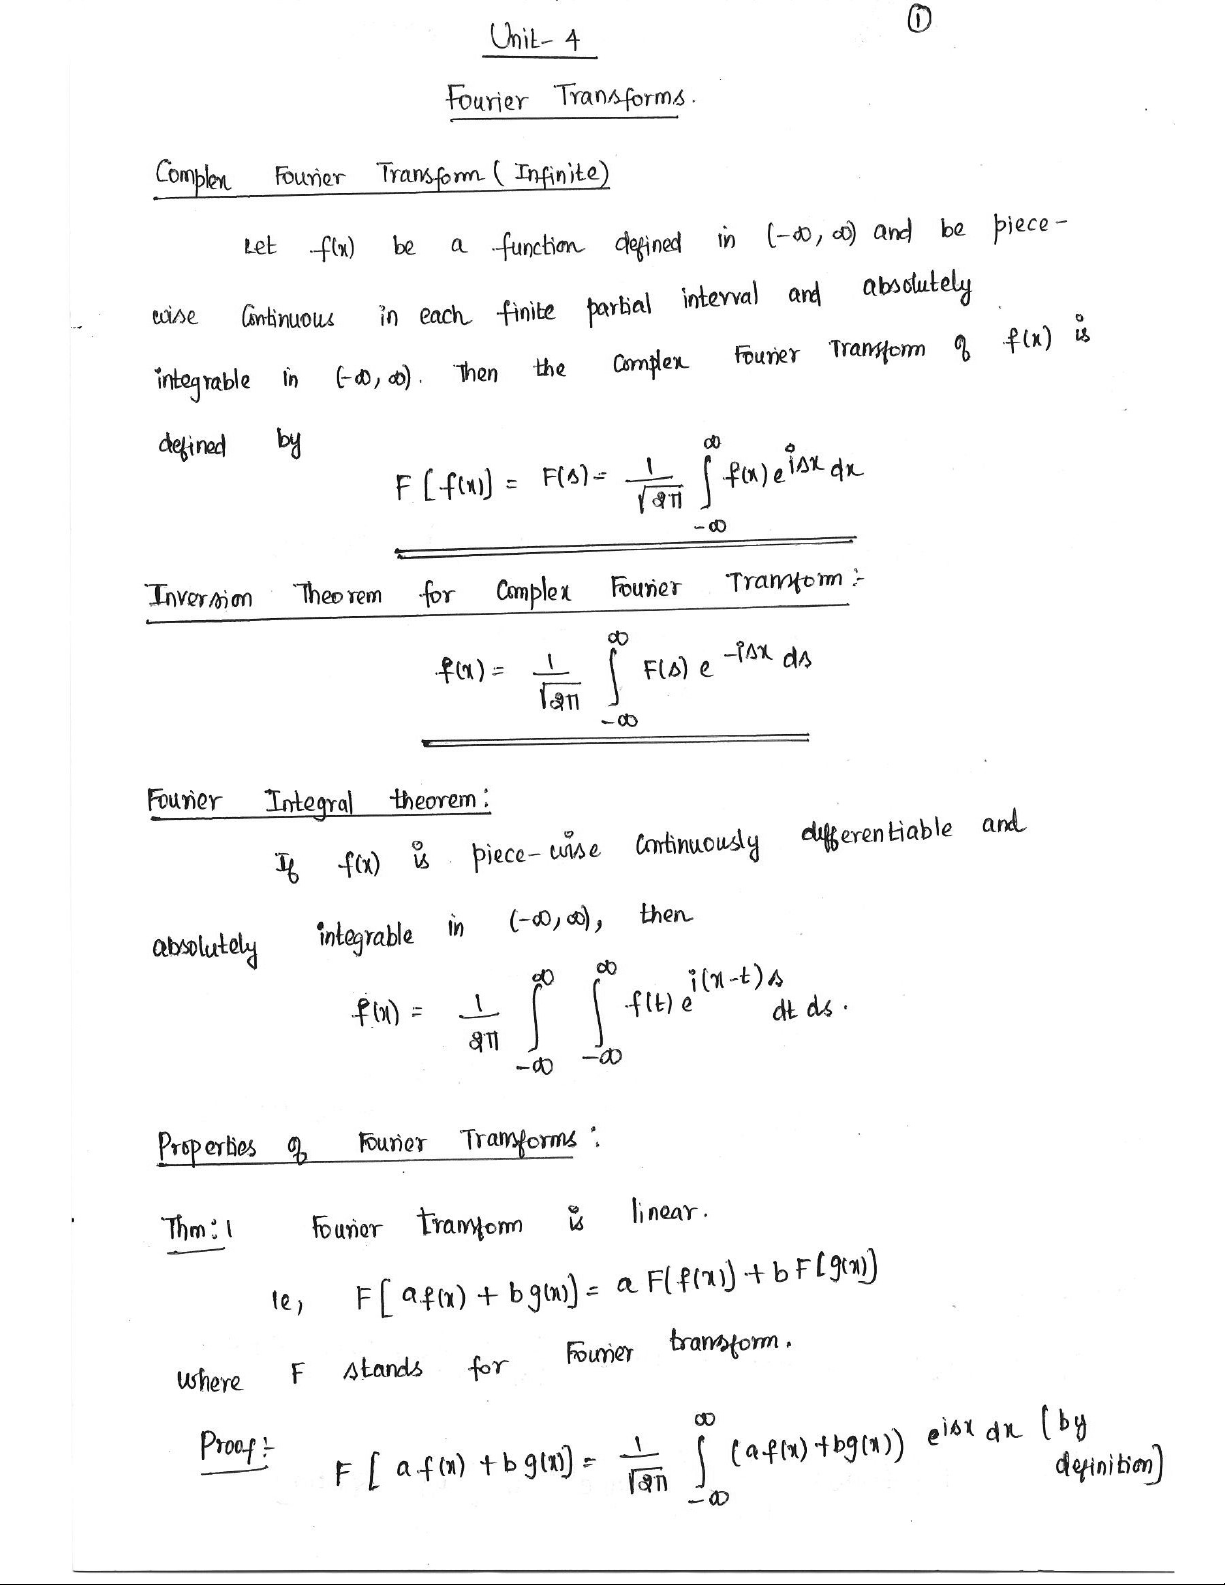 ①
Unit- 4
Fourier Transforms.
Complex Fourier Transform ( Infinite)
Let f(x) be a function defined in (-∞, ∞) and be piece-
wise Continuous in each finite partial interval and absolutely
integrable in (-∞, ∞). Then the Complex Fourier Transform of f(x) is
defined by
F [f(x)] = F(s) = 1/√2π ∫_{-∞}^{∞} f(x) e^{isx} dx
Inversion Theorem for Complex Fourier Transform :-
f(x) = 1/√2π ∫_{-∞}^{∞} F(s) e^{-isx} ds
Fourier Integral theorem :
If f(x) is piece-wise Continuously differentiable and
absolutely integrable in (-∞, ∞), then
f(x) = 1/2π ∫_{-∞}^{∞} ∫_{-∞}^{∞} f(t) e^{i(x-t)s} dt ds.
Properties of Fourier Transforms :
Thm : 1 Fourier transform is linear.
ie, F[ af(x) + bg(x)] = a F[f(x)] + b F[g(x)]
where F stands for Fourier transform.
Proof :- F [ af(x) + bg(x)] = 1/√2π ∫_{-∞}^{∞} (af(x) + bg(x)) e^{isx} dx (by
definition)